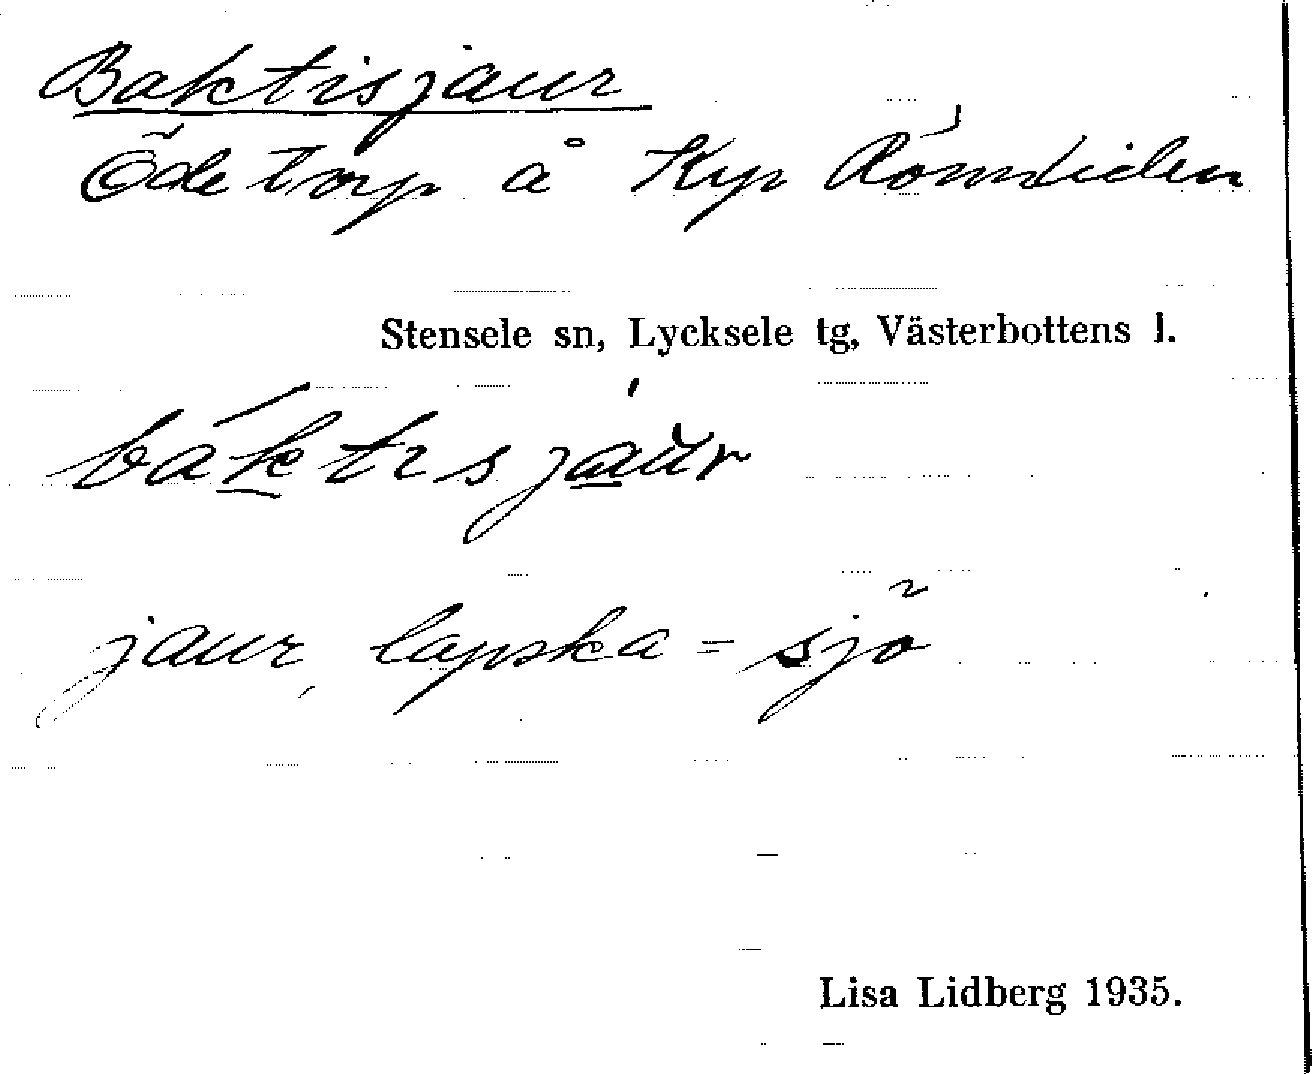 Baktisjaur
Öde torp å Krp Rönnliden
Stensele sn, Lycksele tg, Västerbottens l.
báktisjau̇r
jaur, lapska = sjö
Lisa Lidberg 1935.